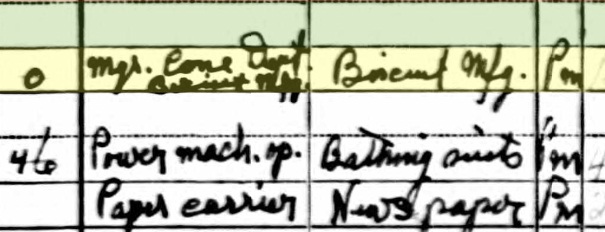 0 Mgr. Cone Dept. Biscuit Mfg. Pm
Biscuit Mfg.
46 Power mach. op. Bathing suits Pm
Paper carrier News paper Pm